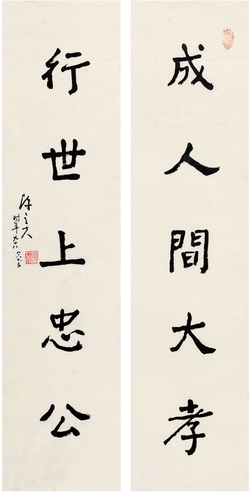 成人間大孝
行世上忠公